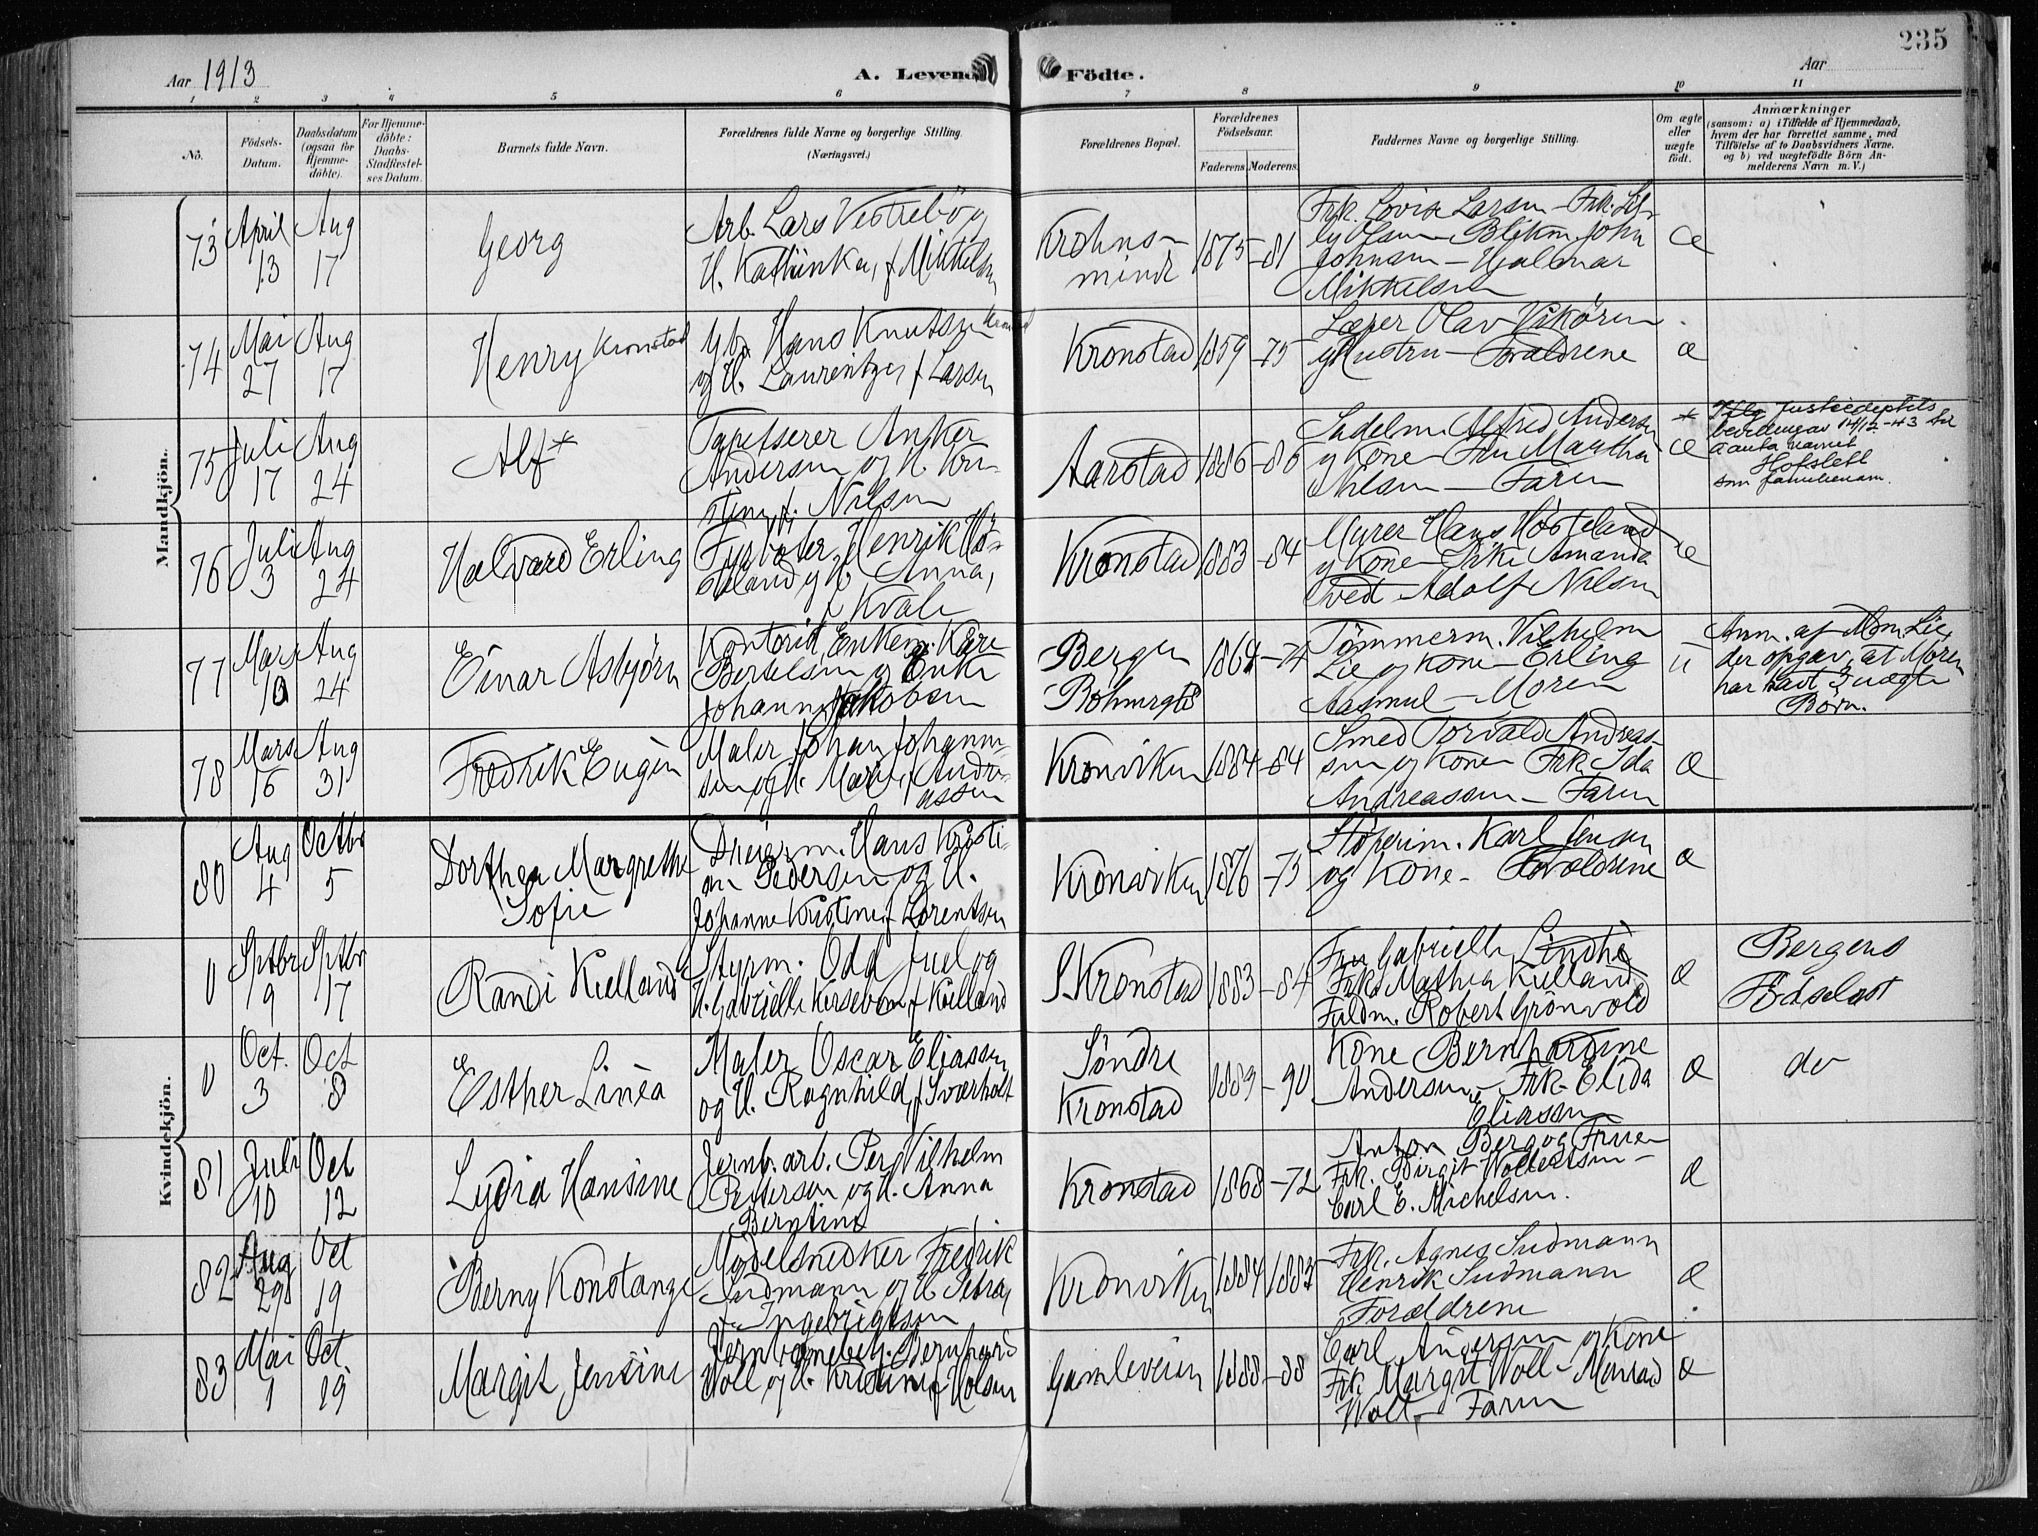 235
Aar 1913
A. Levende
Födte.
Aar
1 2 3 4 5 6 7 8 9 10 11
No.
Födsels-
Datum.
Daabsdatum
(ogsaa for
Hjemme-
döbte).
For Hjemme-
döbte:
Daabs-
Stadfæstel-
ses Datum.
Barnets fulde Navn.
Forældrenes fulde Navne og borgerlige Stilling.
(Næringsvei.)
Forældrenes Bopæl.
Forældrenes
Födselsaar.
Faderens. Moderens.
Faddernes Navne og borgerlige Stilling.
Om ægte
eller
uægte
födt.
Anmærkninger
(saasom: a) i Tilfælde af Hjemmedaab,
hvem der har forrettet samme, med
Tilföielse af to Daabsvidners Navne.
og b) ved uægtefödte Börn An-
melderens Navn m. V.)
Mandkjön.
73
April
13
Aug
17
Georg
Arb. Lars Vestrebö og
H. Kathinka, f Mikkelsen
Krohns-
minde
1875-81
Frk. Lovise Larsen - Frk.
Olsen - Blikm John
Johnsen - Hjalmar
Mikkelsen
æ
74
Mai
27
Aug
17
Henry Kronstad
Gb. Hans Knutsen Kronstad
og H. Laurentze, f Larsen
Kronstad
1859-75
Lærer Olav Vikören
og Hustru - Forældrene
æ
75
Juli
17
Aug
24
Alf *
Tapetserer Anker
Andersen og H. Kri-
stine f. Nilsen
Aarstad
1886-86
Sadelm Alfred Andersen
og Kone - Fru Martha
Nilsen - Faren
*
æ
Ifla Justisdeptets
bevilling av 14/12-43 til
å anta navnet
Hofslett
som familienavn.
76
Juli
3
Aug
24
Halvard Erling
Fyrböter Henrik Hö-
steland og H. Anna,
f Kvale
Kronstad
1883-84
Murer Hans Hösteland
og Kone - Frk. Amanda
Tvedt - Adolf Nilsen
æ
77
Mars
10
Aug
24
Einar Asbjörn
Kontorist, Enkem. Kåre
Bertelsen og Enke
Johanne Jakobsen
Bergen
1864-74
Tömmerm. Vilhelm
Lie og Kone - Erling
Aasmul - Moren
u
Anm. af Mm Lie,
der opgav, at Moren
har havt 3 uægte
Börn.
78
Mars
16
Aug
31
Fredrik Eugen
Maler Johan Johann-
sen og H. Marie, f Andre-
assen
Kronviken
1884-84
Smed Torvald Andreas-
sen og Kone Frk. Ida
Andreassen - Faren
æ
Kvindekjön.
80
Aug
4
Octbr
5
Dorthea Margrethe
Sofie
Dreierm. Hans Kristi-
an Pedersen og H.
Johanne Kristine f Lorentzen
Kronviken
1876-75
Støperim. Karl Jensen
og Kone - Forældrene
æ
0
Sptbr
9
Sptbr
17
Randi Kielland
Styrm. Odd Juel og
H. Gabrielle Kirsebom f Kielland
S. Kronstad
1883-84
Fru Gabrielle Lindhé
Frk. Mathea Kielland
Fuldm. Robert Grönvold
æ
Bergens
Födselsst
0
Oct.
3
Oct
8
Esther Linéa
Maler Oscar Eliassen
og H. Ragnhild, f Sværholt
Söndre
Kronstad
1889-90
Kone Bernhardine
Andersen, - Frk. Elida
Eliassen
æ
do
81
Juli
10
Oct
12
Lydia Hansine
Jernb.arb. Per Vilhelm
Petterson og H. Anna
Berntine
Kronstad
1868-72
Anton Berg og Frue
Frk. Birgit Woltersen -
Carl E. Michelsen.
æ
82
Aug
29
Oct
19
Berny Konstanze
Modelsnedker Fredrik
Sudmann og H Petra,
f. Ingebrigtsen
Kronviken
1884 1882
Frk. Agnes Sudmann
Henrik Sudmann
Forældrene
æ
83
Mai
1
Oct
19
Margit Jensine
Jernbanebetj. Bernhard
Woll og H. Kristine f Holsen
Gamleveien
1888-88
Carl Andersen og Kone
Frk Margit Woll -
Woll - Faren
æ